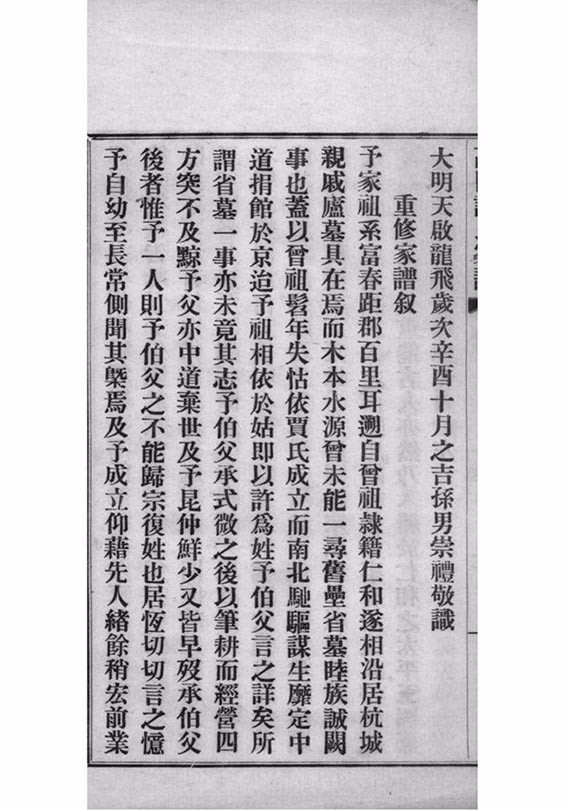 大明天啟龍飛歲次辛酉十月之吉孫男崇禮敬識
重修家譜叙
予家祖系富春距郡百里耳遡自曾祖隷籍仁和遂相沿居杭城
親戚廬墓具在焉而木本水源曾未能一尋舊壘省墓睦族誠闕
事也蓋以曾祖髫年失怙依賈氏成立而南北馳驅謀生靡定中
道捐館於京迨予祖相依於姑即以許爲姓予伯父言之詳矣所
謂省墓一事亦未竟其志予伯父承式微之後以筆耕而經營四
方突不及黔予父亦中道棄世及予昆仲鮮少又皆早歿承伯父
後者惟予一人則予伯父之不能歸宗復姓也居恆切切言之憶
予自幼至長常側聞其槩焉及予成立仰藉先人緒餘稍宏前業